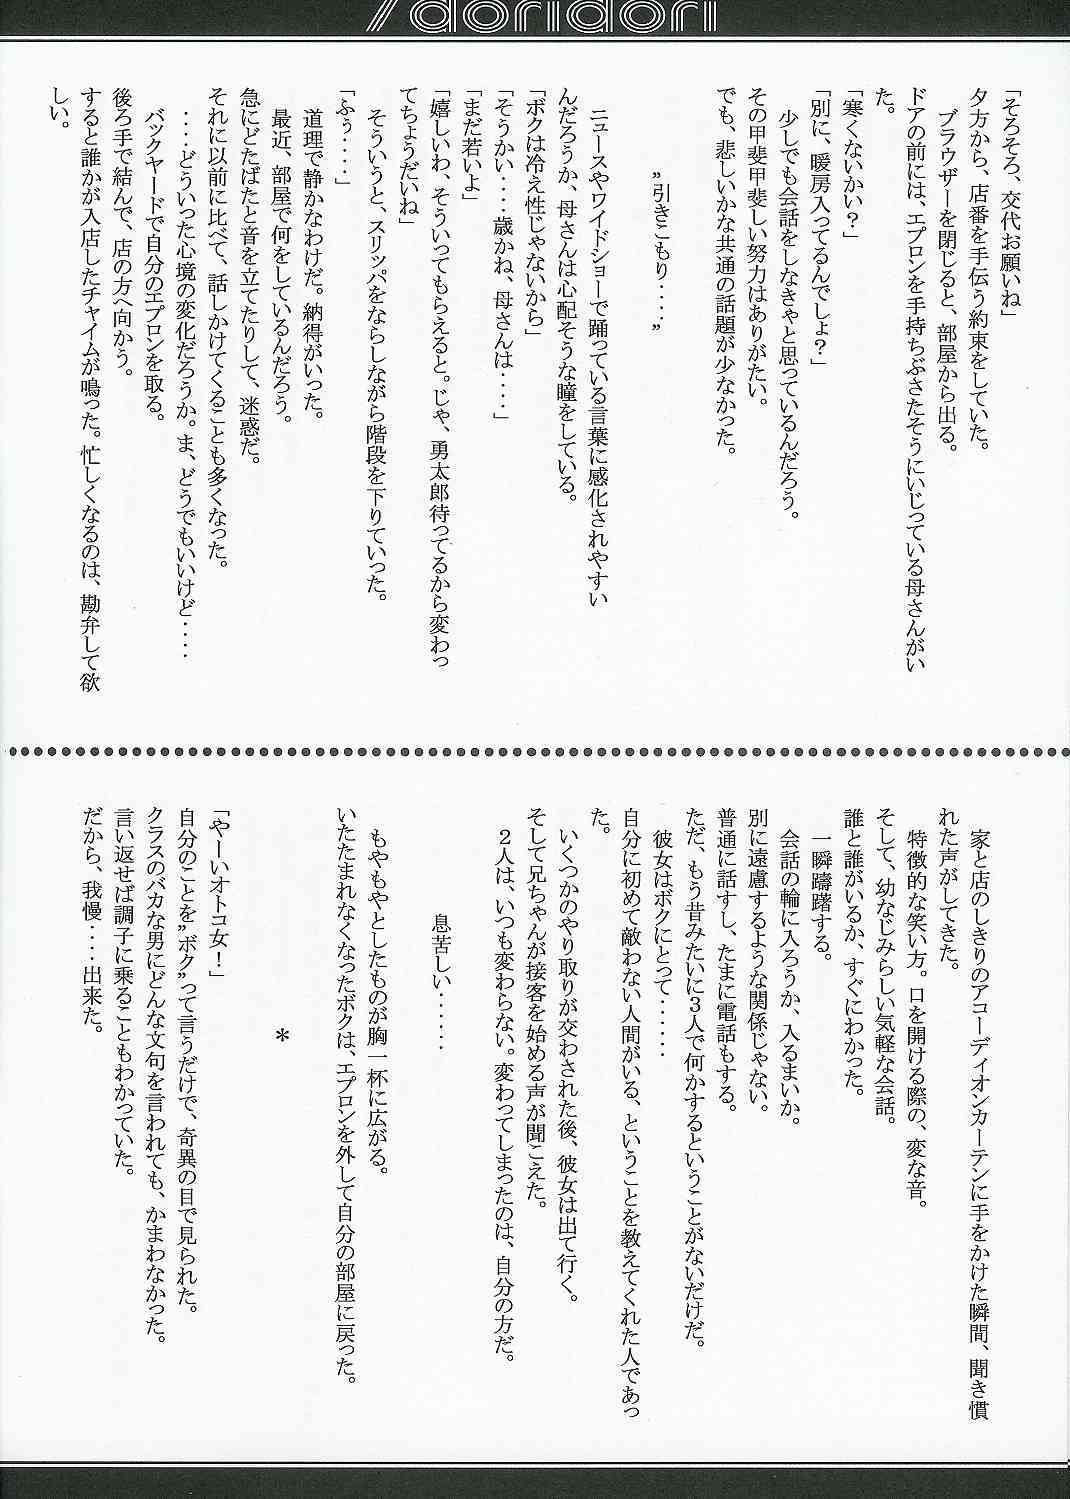 /doridori
「そろそろ、交代お願いね」
夕方から、店番を手伝う約束をしていた。
ブラウザーを閉じると、部屋から出る。
ドアの前には、エプロンを手持ちぶさたそうにいじっている母さんがい
た。
「寒くないかい？」
「別に、暖房入ってるんでしょ？」
少しでも会話をしなきゃと思っているんだろう。
その甲斐甲斐しい努力はありがたい。
でも、悲しいかな共通の話題が少なかった。
”引きこもり‥‥”
ニュースやワイドショーで踊っている言葉に感化されやすい
んだろうか、母さんは心配そうな瞳をしている。
「ボクは冷え性じゃないから」
「そうかい‥‥歳かね、母さんは‥‥」
「まだ若いよ」
「嬉しいわ、そういってもらえると。じゃ、勇太郎待ってるから変わっ
てちょうだいね」
そういうと、スリッパをならしながら階段を下りていった。
「ふぅ‥‥」
道理で静かなわけだ。納得がいった。
最近、部屋で何をしているんだろう。
急にどたばたと音を立てたりして、迷惑だ。
それに以前に比べて、話しかけてくることも多くなった。
‥‥どういった心境の変化だろうか。ま、どうでもいいけど‥‥
バックヤードで自分のエプロンを取る。
後ろ手で結んで、店の方へ向かう。
すると誰かが入店したチャイムが鳴った。忙しくなるのは、勘弁して欲
しい。
家と店のしきりのアコーディオンカーテンに手をかけた瞬間、聞き慣
れた声がしてきた。
特徴的な笑い方。口を開ける際の、変な音。
そして、幼なじみらしい気軽な会話。
誰と誰がいるか、すぐにわかった。
一瞬躊躇する。
会話の輪に入ろうか、入るまいか。
別に遠慮するような関係じゃない。
普通に話すし、たまに電話もする。
ただ、もう昔みたいに３人で何かするということがないだけだ。
彼女はボクにとって‥‥‥
自分に初めて敵わない人間がいる、ということを教えてくれた人であっ
た。
いくつかのやり取りが交わされた後、彼女は出て行く。
そして兄ちゃんが接客を始める声が聞こえた。
２人は、いつも変わらない。変わってしまったのは、自分の方だ。
息苦しい‥‥‥
もやもやとしたものが胸一杯に広がる。
いたたまれなくなったボクは、エプロンを外して自分の部屋に戻った。
＊
「やーいオトコ女！」
自分のことを”ボク”って言うだけで、奇異の目で見られた。
クラスのバカな男にどんな文句を言われても、かまわなかった。
言い返せば調子に乗ることもわかっていた。
だから、我慢‥‥出来た。